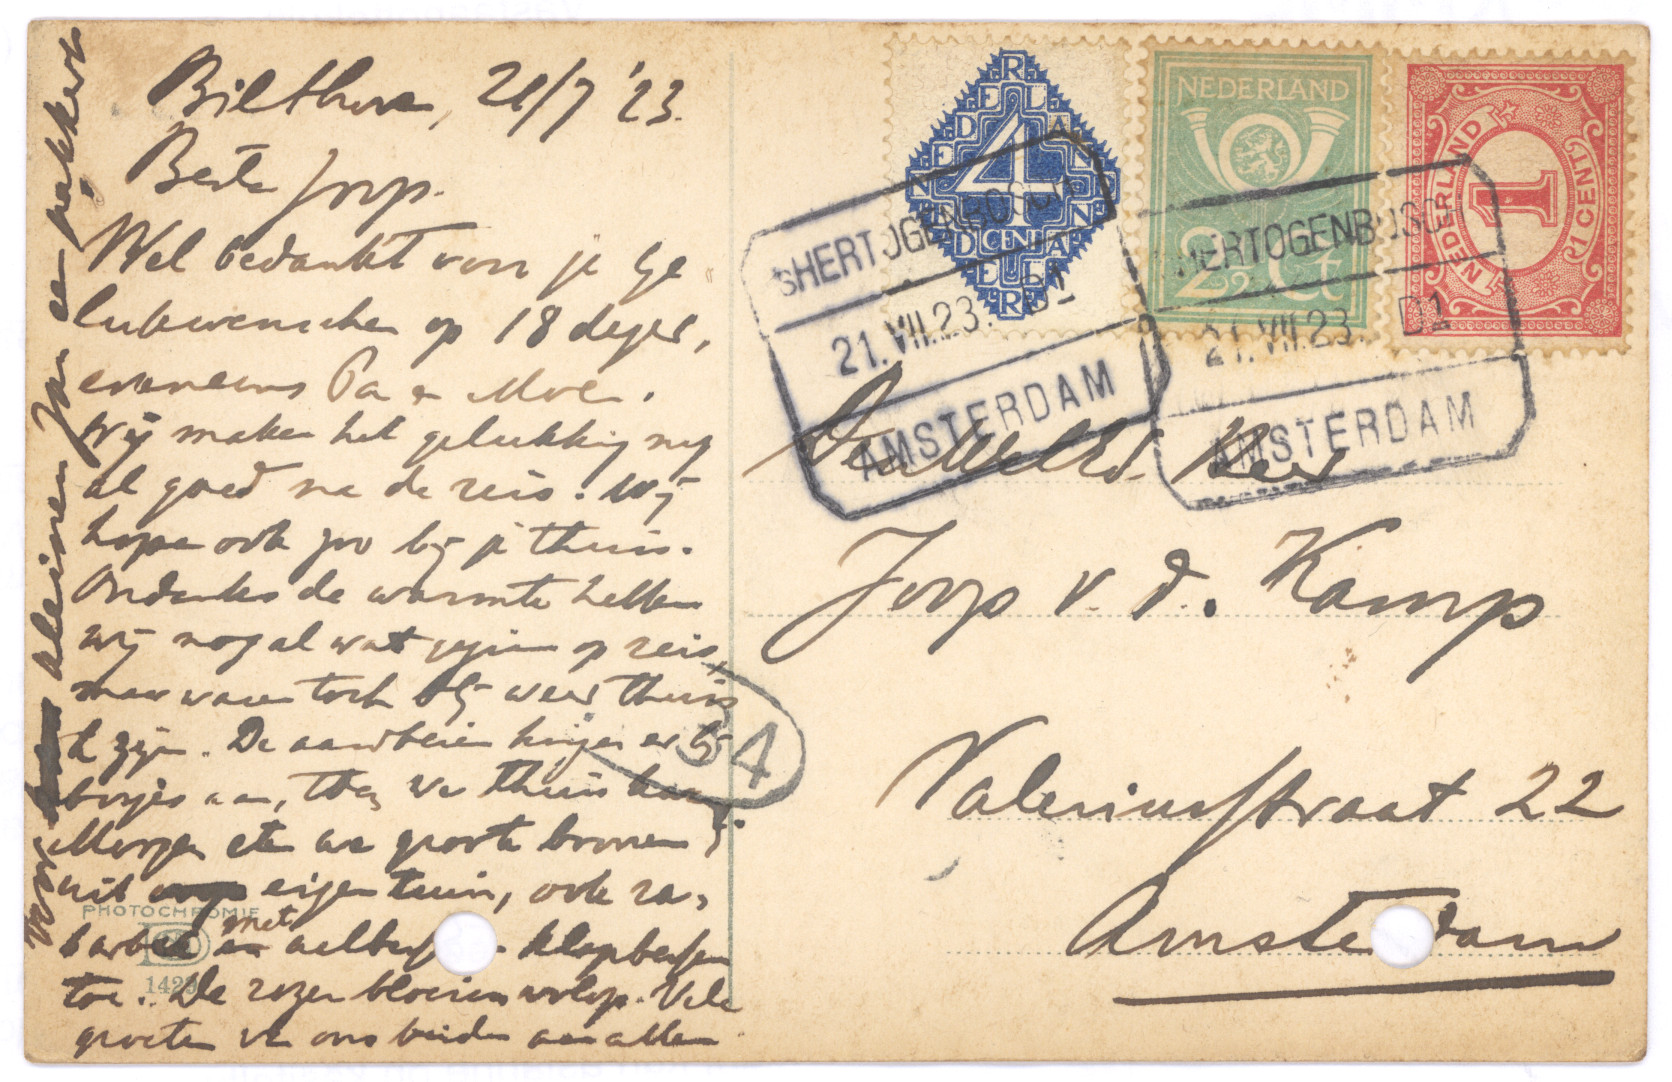 Bilthoven, 21/7 '23.
Beste Joop.
Wel bedankt voor je ge-
lukwenschen op 18 deezer,
eveneens Pa en Moe.
Wij maken het gelukkig nog
al goed na de reis. Wij
hopen ook zoo bij je thuis.
Ondanks de warmte hebben
wij nogal wat op reis,
maar waren toch blij weer thuis
te zijn. De aardbeien hingen er bij
bosjes aan, toen we thuis kwamen.
Morgen eten we groote boonen
uit eigen tuin, ook ra-
barber met aalbessen klapbessen
toe. De rozen bloeien volop. Vele
groeten van ons beiden aan allen
Voor kleinen Jan een pakkerd
NEDERLAND
4
CENT
NEDERLAND
2½ Ct
NEDERLAND
1
1 CENT
SHERTOGENBOSCH
21.VII.23. D1
AMSTERDAM
SHERTOGENBOSCH
21.VII.23. D1
AMSTERDAM
Den Weled. Heer
Joop v. d. Kamp
Valeriusstraat 22
Amsterdam
34
PHOTOCHROMIE
142